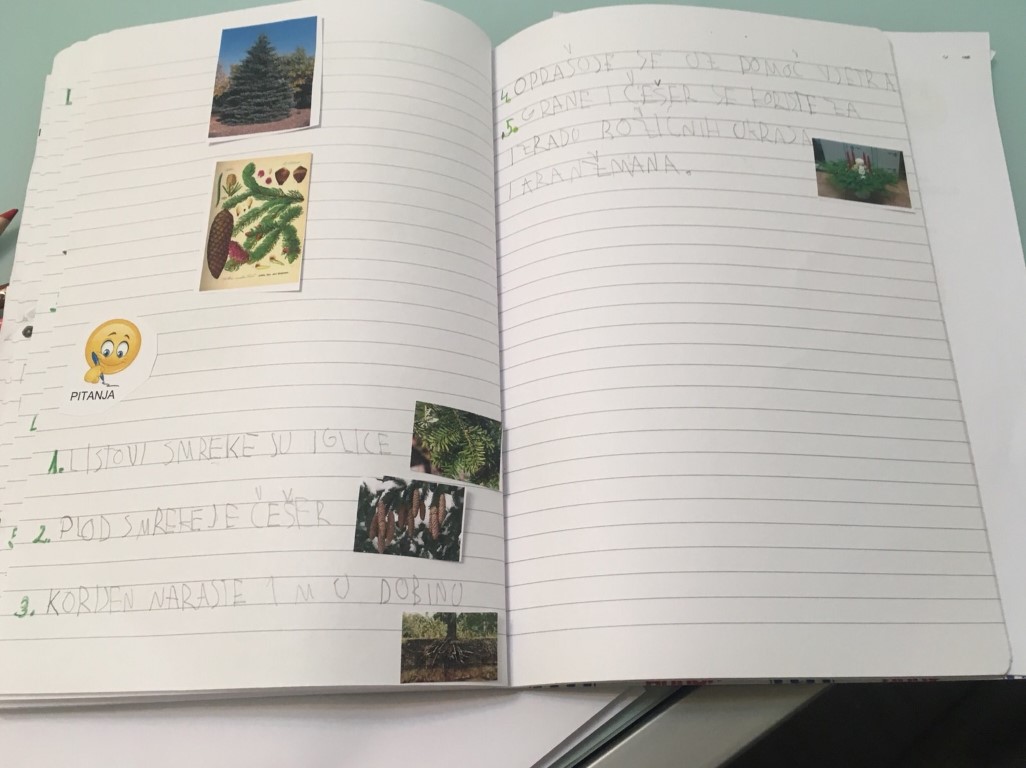 PITANJA
1. LISTOVI SMREKE SU IGLICE
2. PLOD SMREKE JE ČEŠER
3. KORIJEN NARASTE 1 M U DUBINU
4. OPRAŠUJE SE UZ POMOĆ VJETRA
5. GRANE I ČEŠER SE KORISTE ZA
IZRADU BOŽIĆNIH UKRASA